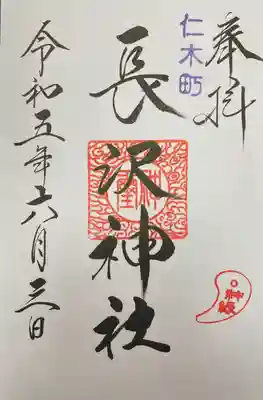 奉拝
仁木町
長沢神社
令和五年六月三日
御縁